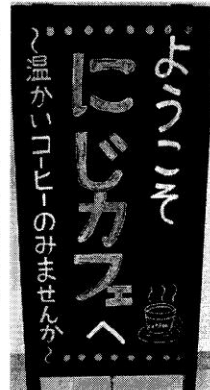 ようこそ
にじカフェへ
～温かいコーヒーのみませんか～